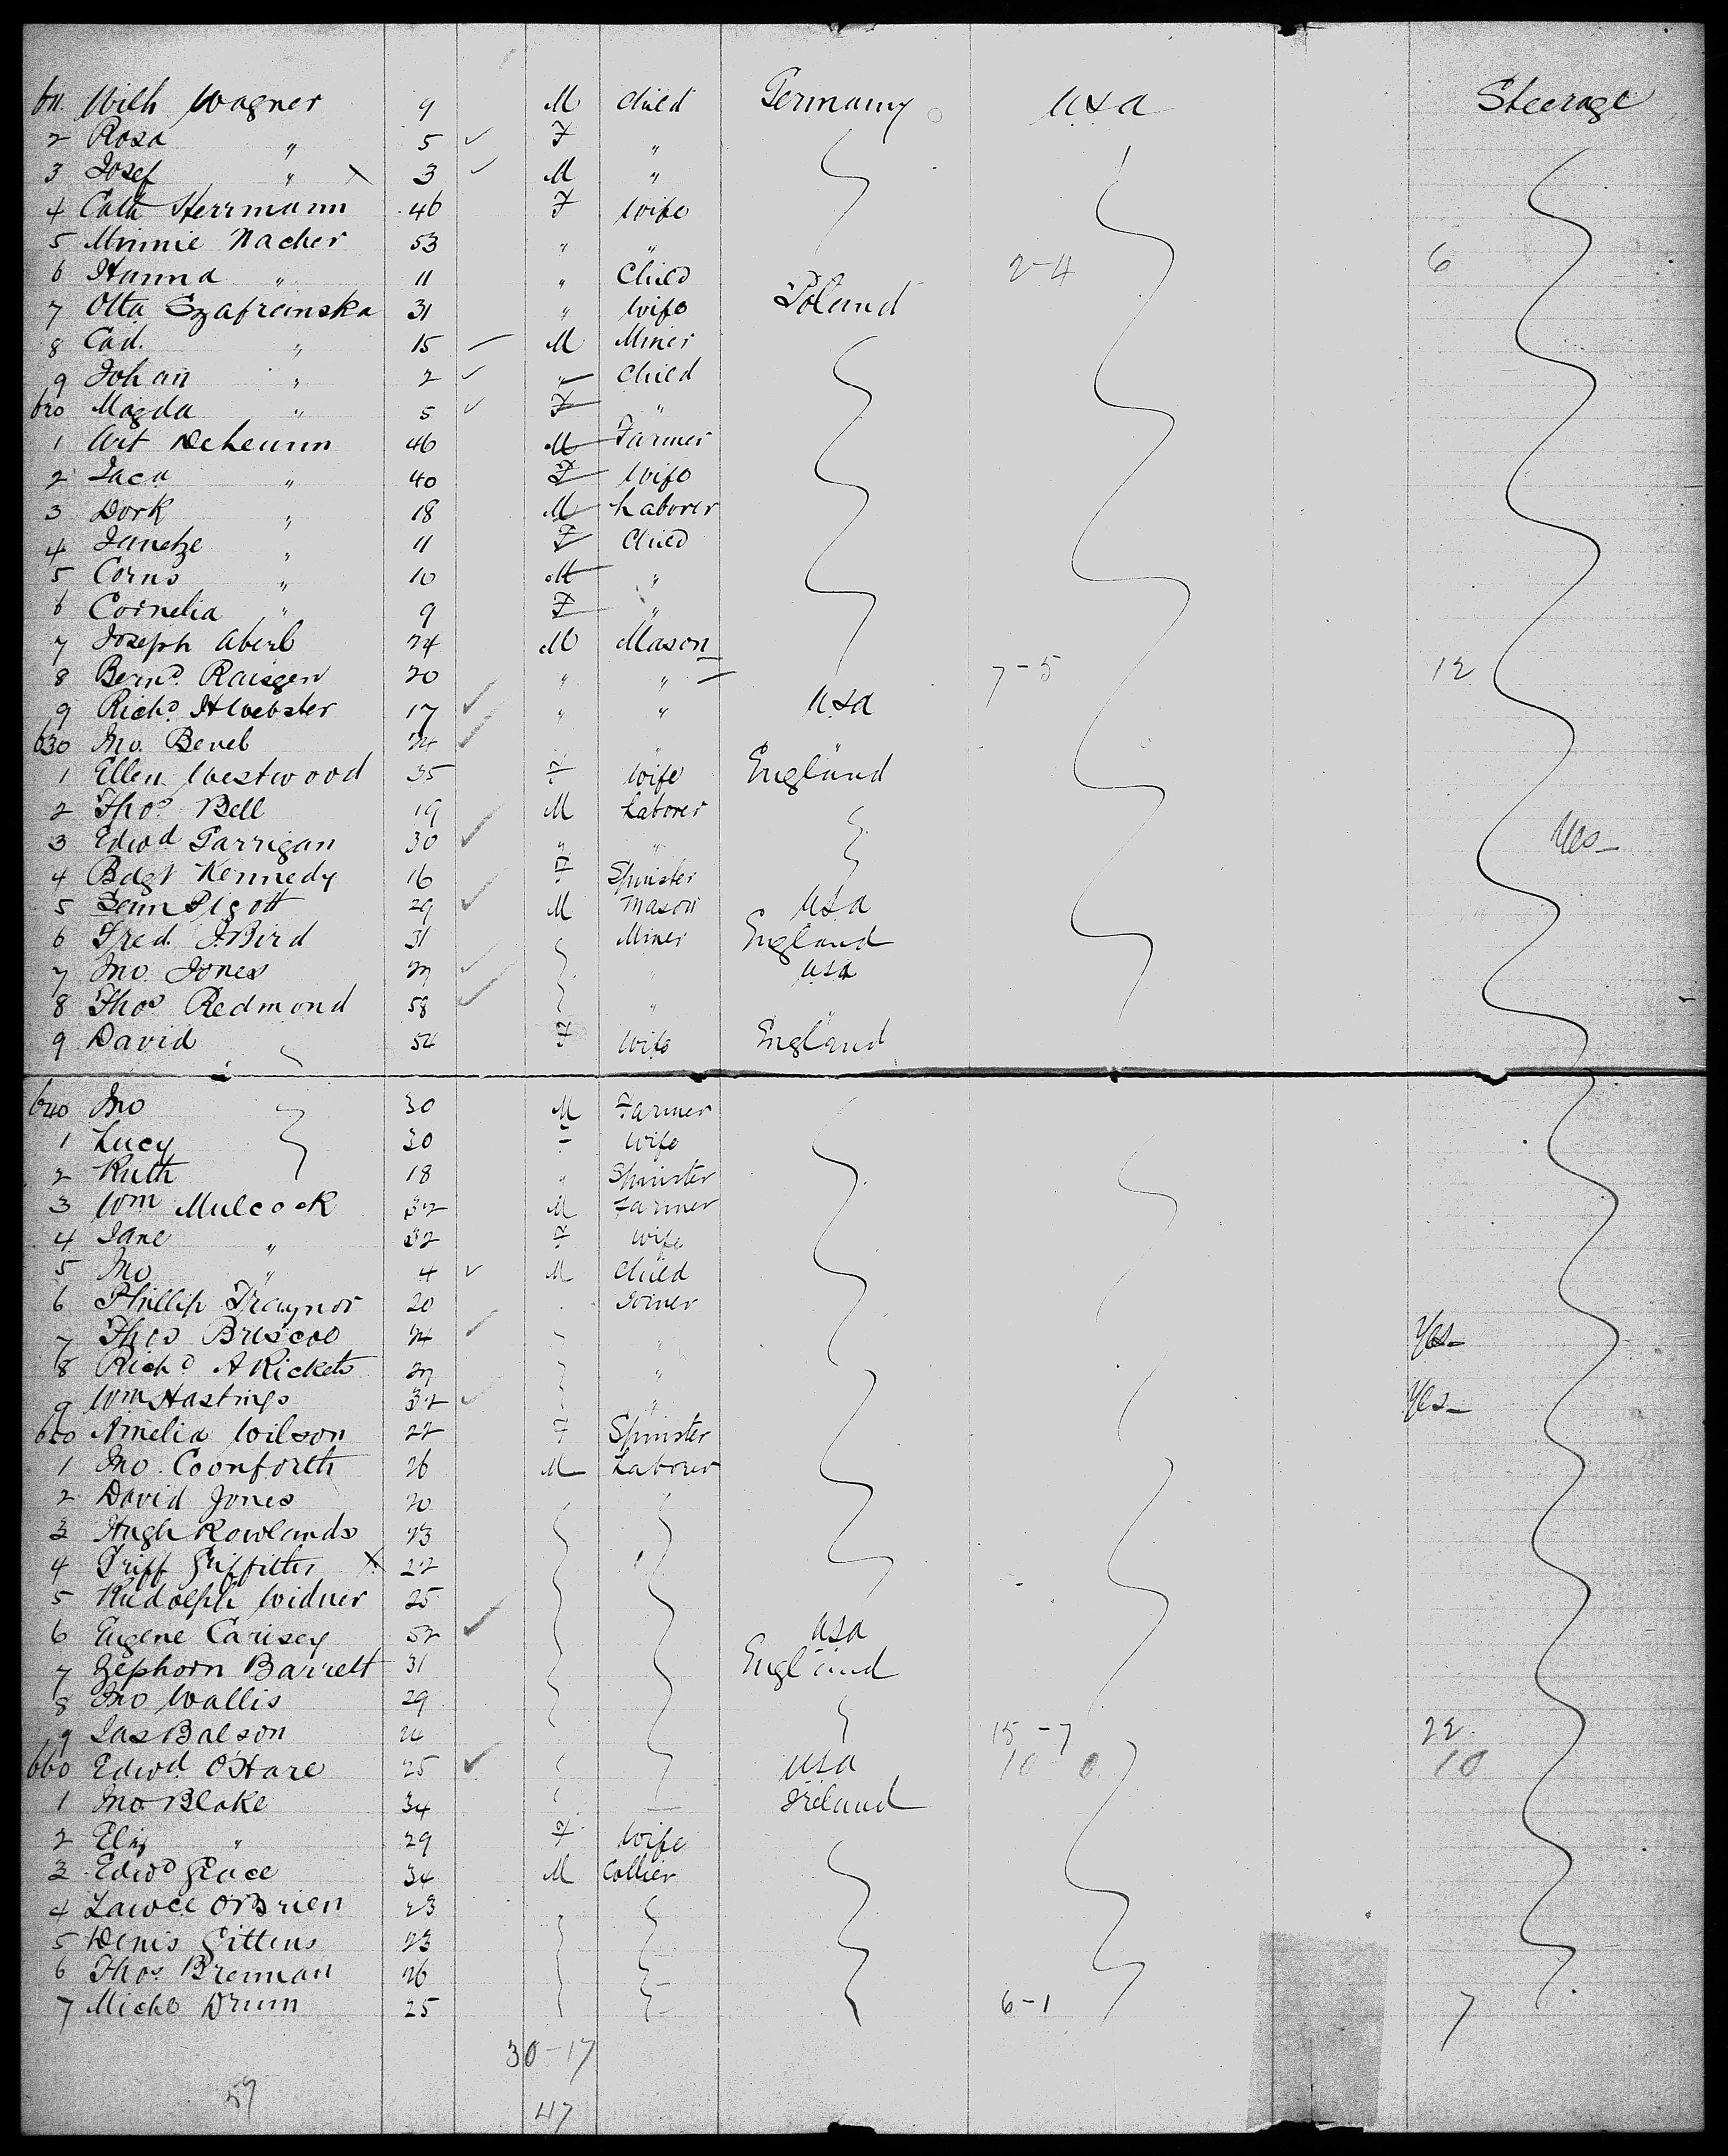 611. Wilh Wagner 9 M Child Germany USA Steerage
2 Rosa " 5 ✓ F "
3 Josef " X 3 ✓ M "
4 Cath Herrmann 46 F Wife
5 Minnie Nacher 53 " "
6 Hanna " 11 " Child 2-4 6
7 Otta Szafranska 31 " Wife Poland
8 Cad. " 15 M Miner
9 Johan " 2 ✓ " Child
620 Magda " 5 ✓ F "
1 Art 46 M Farmer
2 Jaca " 40 F Wife
3 Dork " 18 M Laborer
4 Janetze " 11 F Child
5 Corns " 10 M "
6 Cornelia " 9 F "
7 Joseph Aberl 24 M Mason
8 Bernd. Raisgen 20 " " 7-5 12
9 Richd. H Webster 17 ✓ " " USA
630 Jno. Bevel 24 ✓ " "
1 Ellen Westwood 35 F Wife England
2 Thos. Bell 19 M Laborer
3 Edwd Garrigan 30 ✓ " " Yes
4 Bdgt Kennedy 16 F Spinster
5 Pigott 29 ✓ M Mason USA
6 Fred. J. Bird 31 Miner England
7 Jno Jones 27 ✓ " USA
8 Thos Redmond 58 ✓ " "
9 David 54 F Wife England
640 Jno 30 M Farmer
1 Lucy 30 F Wife
2 Ruth 18 " Spinster
3 Wm Mulcock 32 M Farmer
4 Jane " 32 F Wife
5 Jno " 4 ✓ M Child
6 Phillip Traynor 20 Joiner
7 Thos Briscoe 24 ✓ " Yes
8 Richd A Rickets 27 "
9 Wm Hastings 32 ✓ " Yes
650 Amelia Wilson 22 F Spinster
1 Jno. Coonforth 26 M Laborer
2 David Jones 20
3 Hugh Rowlands 23
4 Griff Griffiths X 22
5 Rudolph Widner 25
6 Eugene Carisey 52 ✓ USA
7 Zephorn Barrett 31 England
8 Jno Wallis 29
9 Jas Balson 24 15-7 22
660 Edwd O'Hare 25 ✓ USA 10 0 10
1 Jno. Blake 34 Ireland
2 Eliz " 29 F Wife
3 Edwd Grace 34 M Collier
4 Lawce O'Brien 23
5 Denis Gittens 23
6 Thos. Brennan 26
7 Michl Drum 25 6-1 7
30-17
59
47